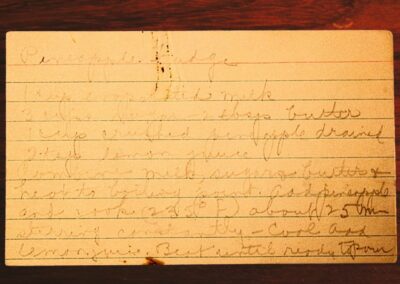 Pineapple Fudge
1 cup evaporated milk
3 cups sugar - 2 tbsp butter
1 cup crushed pineapple drained
2 tsp lemon juice
Combine milk, sugar & butter &
heat to boiling point. Add pineapple
and cook (235° F) about 25 min
stirring constantly - Cool Add
lemon juice. Beat until ready to pour